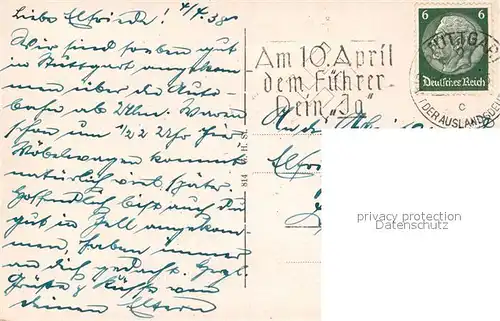 Liebe Elfriede! 4/4.38
Wir sind soeben gut
in Stuttgart angekom
men über die Auto-
bahn ab Ulm. Waren
schon um 1/2 2 Uhr hier
Möbelwagen kommt
natürlich viel später.
Hoffentlich bist auch Du
gut in Zell angekom
men, haben immer
an dich gedacht. Herzl.
Grüße & Küsse von
deinen Eltern
814 H. H. St.
Am 10. April
dem Führer
Dein „Ja"
6 6
Deutsches Reich
STUTTGART
DER AUSLANDS
c
An
Elfriede
privacy protection
Datenschutz